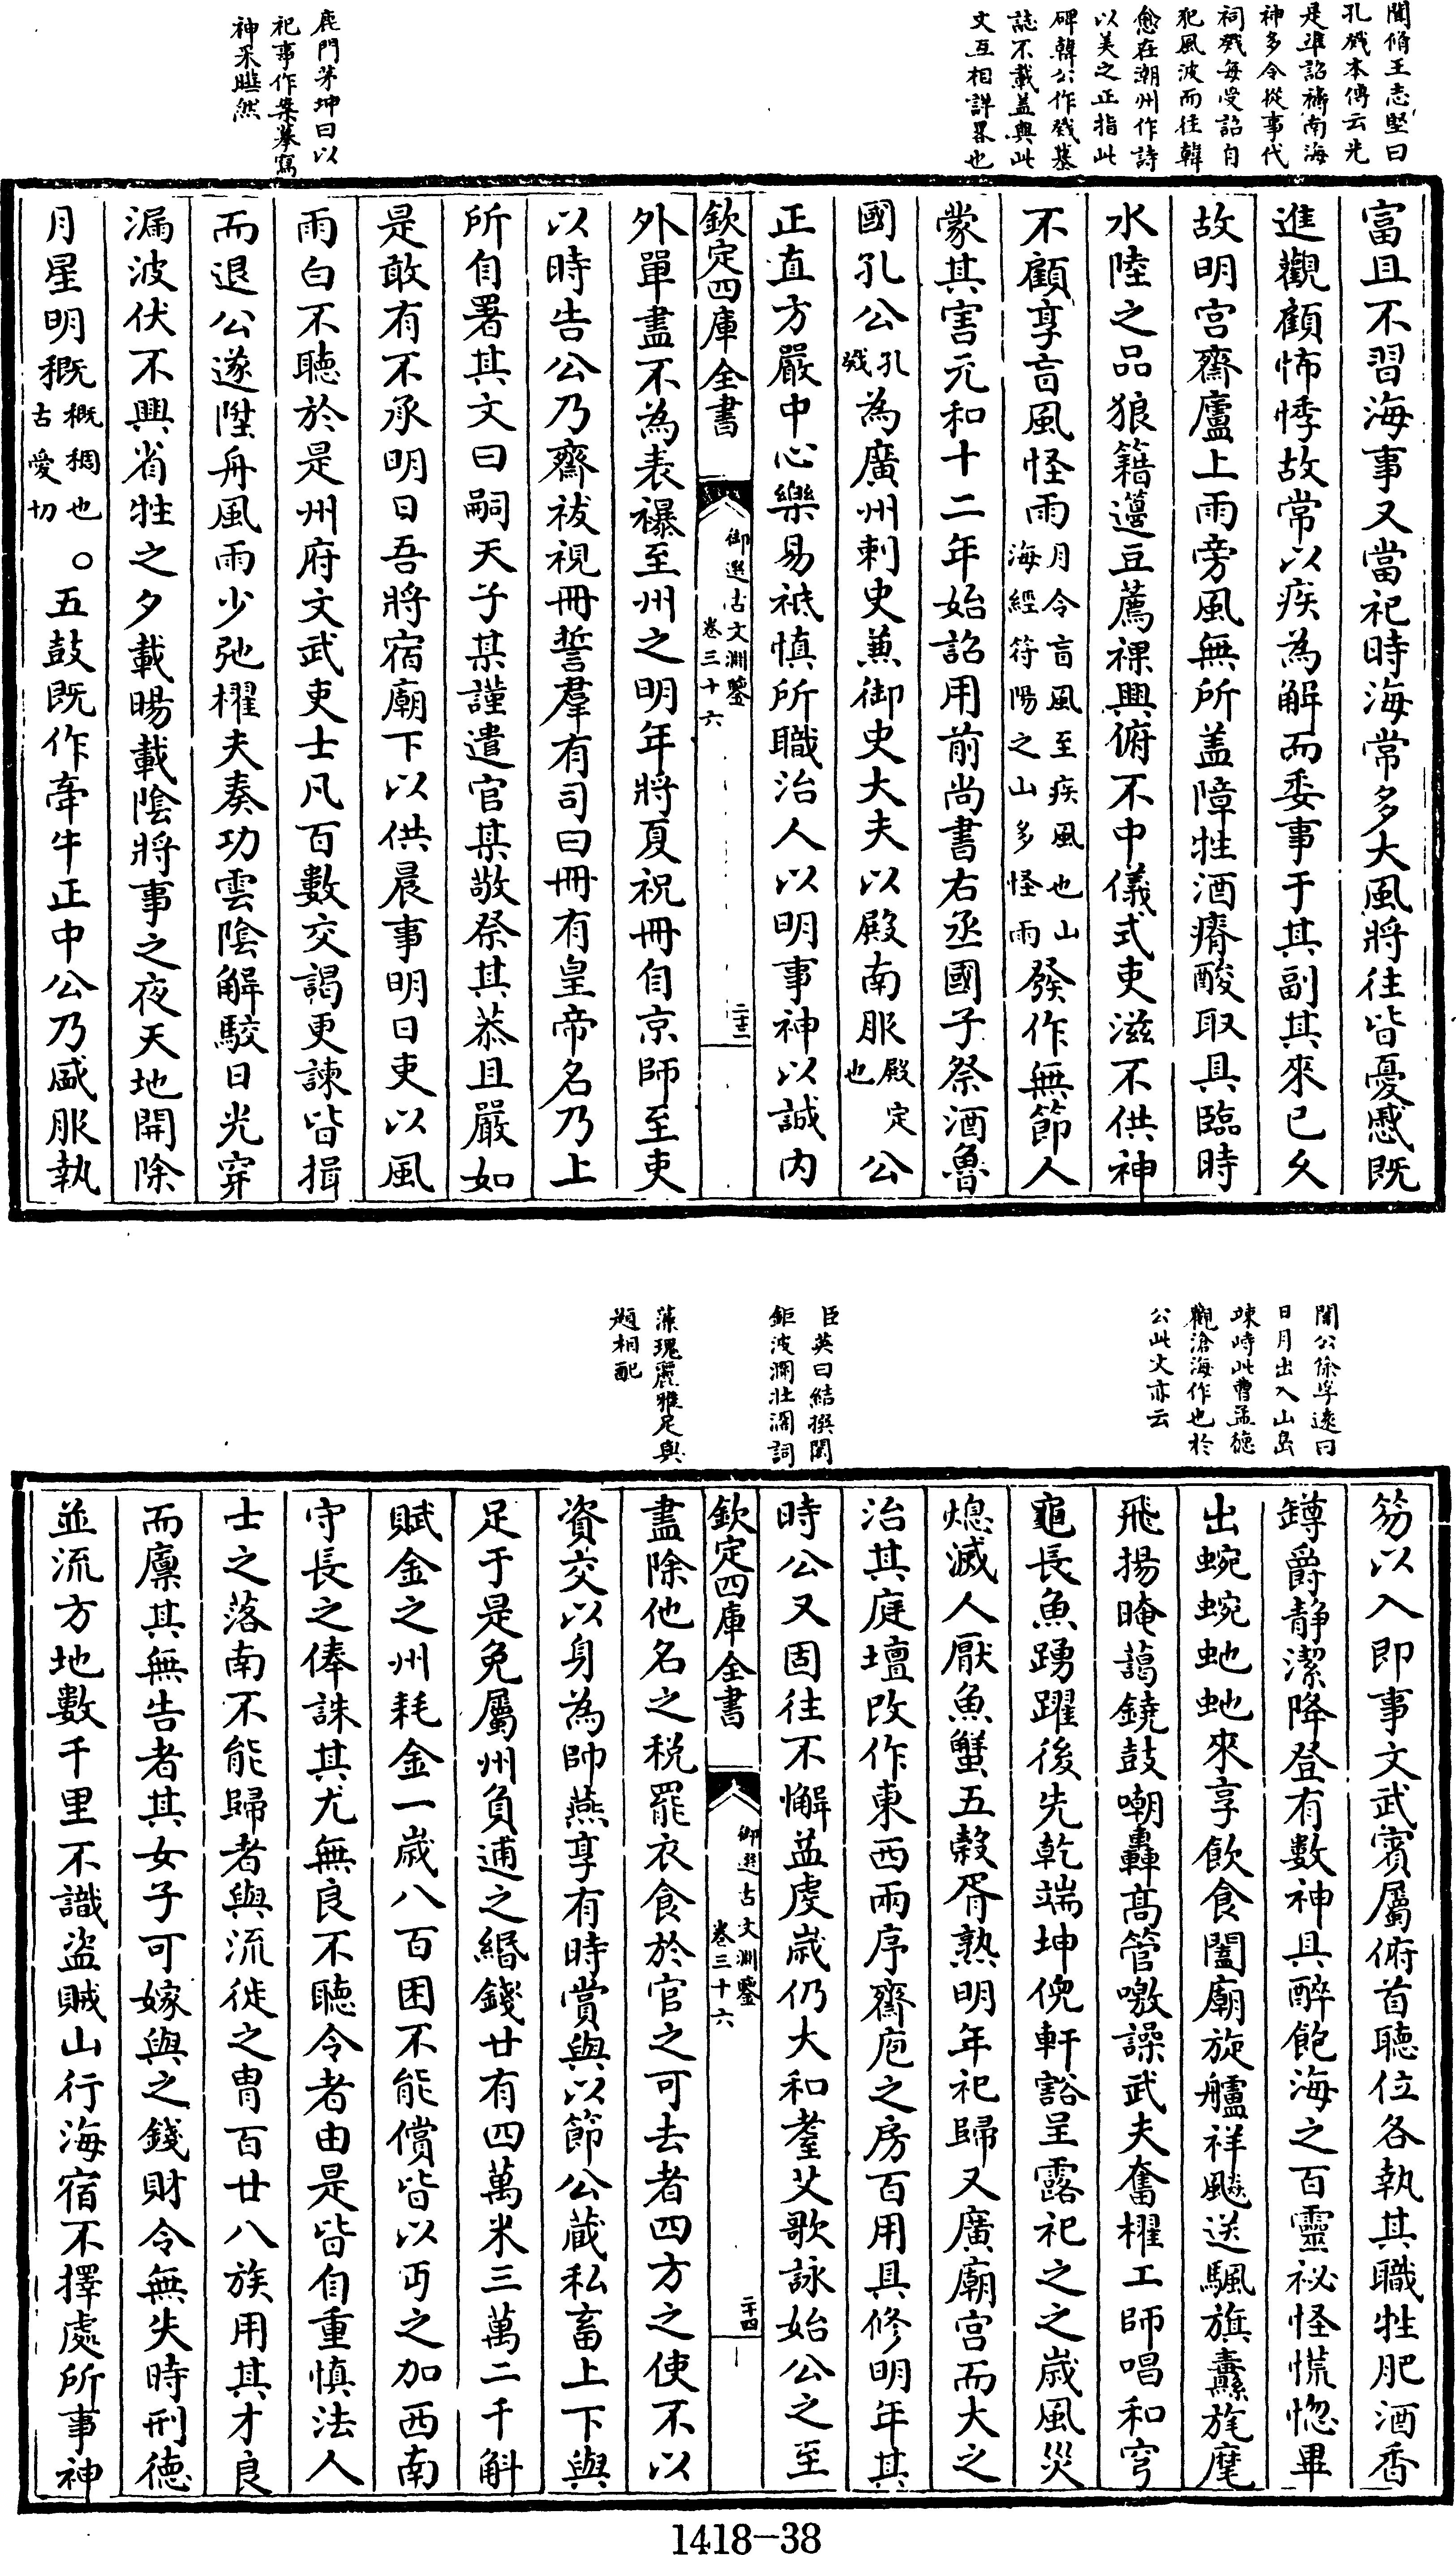 聞脩王志堅曰
孔戣本傳云先
是準詔禱南海
神多令從事代
祠戣每受詔自
犯風波而往韓
愈在潮州作詩
以美之正指此
碑韓公作戣墓
誌不載蓋與此
文互相詳畧也
鹿門茅坤曰以
祀事作案摹寫
神采䁗然
富且不習海事又當祀時海常多大風將往皆憂慼既
進觀顧怖悸故常以疾為解而委事于其副其來已久
故明宫齋廬上雨旁風無所盖障牲酒瘠酸取具臨時
水陸之品狼籍籩豆薦祼興俯不中儀式吏滋不供神
不顧享盲風怪雨月令盲風至疾風也山海經符陽之山多怪雨發作無節人
蒙其害元和十二年始詔用前尚書右丞國子祭酒魯
國孔公孔戣為廣州刺史兼御史大夫以殿南服殿定也公
正直方嚴中心樂易祗慎所職治人以明事神以誠内
欽定四庫全書
御選古文淵鑒
卷三十六
二十三
外單盡不為表襮至州之明年將夏祝冊自京師至吏
以時告公乃齋祓視冊誓羣有司曰冊有皇帝名乃上
所自署其文曰嗣天子某謹遣官某敬祭其恭且嚴如
是敢有不承明日吾將宿廟下以供晨事明日吏以風
雨白不聽於是州府文武吏士凡百數交謁更諫皆揖
而退公遂陞舟風雨少弛櫂夫奏功雲陰解駮日光穿
漏波伏不興省牲之夕載暘載陰將事之夜天地開除
月星明穊穊稠也古愛切。五鼓既作牽牛正中公乃盛服執
聞公徐孚遠曰
日月出入山島
竦峙此曹孟德
觀滄海作也於
公此文亦云
臣英曰結撰閎
鉅波瀾壯濶詞
藻瑰麗雅足與
題相配
笏以入即事文武賓屬俯首聽位各執其職牲肥酒香
罇爵静潔降登有數神具醉飽海之百靈祕怪慌惚畢
出蜿蜿虵虵來享飲食闔廟旋艫祥飈送颿旗纛旄麾
飛揚晻藹鐃鼓嘲轟髙管噭譟武夫奮櫂工師唱和穹
龜長魚踴躍後先乾端坤倪軒豁呈露祀之之歳風災
熄滅人厭魚蟹五榖胥熟明年祀歸又廣廟宫而大之
治其庭壇改作東西兩序齋庖之房百用具修明年其
時公又固往不懈益虔歳仍大和耋艾歌詠始公之至
欽定四庫全書
御選古文淵鑒
卷三十六
二十四
盡除他名之税罷衣食於官之可去者四方之使不以
資交以身為帥燕享有時賞與以節公蔵私畜上下與
足于是免屬州負逋之緡錢廿有四萬米三萬二千斛
賦金之州耗金一歳八百困不能償皆以丐之加西南
守長之俸誅其尤無良不聽令者由是皆自重慎法人
士之落南不能歸者與流徙之胄百廿八族用其才良
而廩其無告者其女子可嫁與之錢財令無失時刑徳
並流方地數千里不識盗賊山行海宿不擇處所事神
1418-38